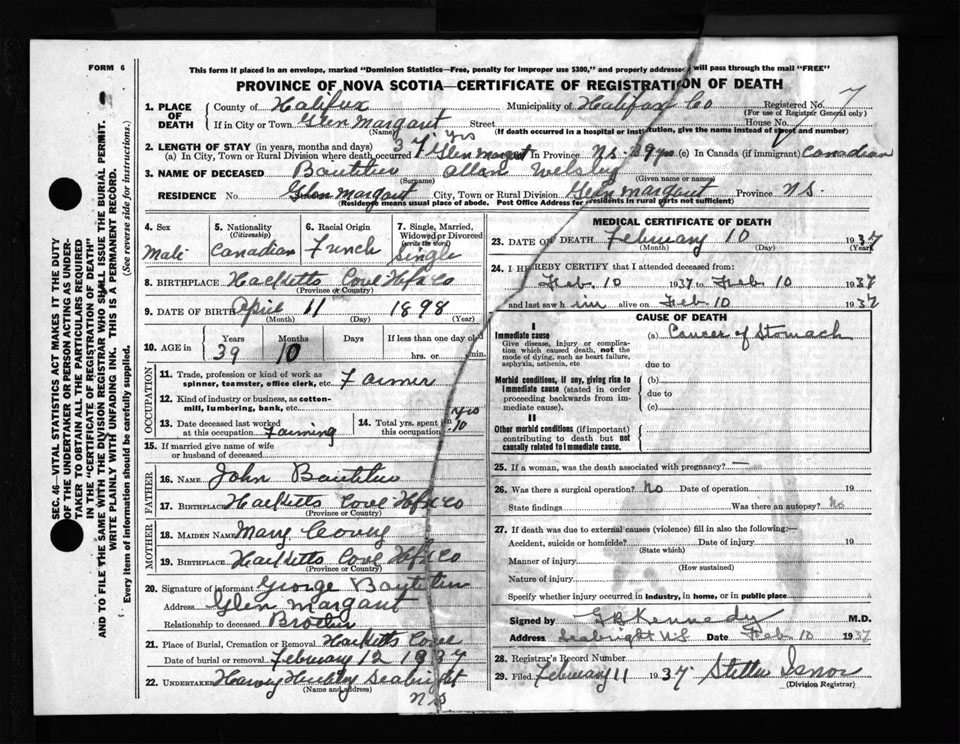 FORM 6
This form if placed in an envelope, marked "Dominion Statistics—Free, penalty for improper use $300," and properly addressed will pass through the mail "FREE"
PROVINCE OF NOVA SCOTIA—CERTIFICATE OF REGISTRATION OF DEATH
SEC. 46—VITAL STATISTICS ACT MAKES IT THE DUTY
OF THE UNDERTAKER OR PERSON ACTING AS UNDER-
TAKER TO OBTAIN ALL THE PARTICULARS REQUIRED
IN THE "CERTIFICATE OF REGISTRATION OF DEATH"
AND TO FILE THE SAME WITH THE DIVISION REGISTRAR WHO SHALL ISSUE THE BURIAL PERMIT.
WRITE PLAINLY WITH UNFADING INK. THIS IS A PERMANENT RECORD.
Every item of information should be carefully supplied. (See reverse side for instructions.)
1. PLACE OF DEATH County of Halifax Municipality of Halifax Co Registered No. 7
(For use of Registrar General only)
If in City or Town Glen Margaut Street House No.
(Name) (If death occurred in a hospital or institution, give the name instead of street and number)
2. LENGTH OF STAY (in years, months and days)
(a) In City, Town or Rural Division where death occurred 37 yrs Glen Margaut In Province N.S. 39 yrs (c) In Canada (if immigrant) Canadian
3. NAME OF DECEASED Boutilier Allan Welsley
(Surname) (Given name or names)
RESIDENCE No. Glen Margaut City, Town or Rural Division Glen Margaut Province N.S.
(Residence means usual place of abode. Post Office Address for residents in rural parts not sufficient)
4. Sex Male
5. Nationality (Citizenship) Canadian
6. Racial Origin French
7. Single, Married, Widowed or Divorced (write the word) Single
8. BIRTHPLACE Hacketts Cove Hfx Co
(Province or Country)
9. DATE OF BIRTH April 11 1898
(Month) (Day) (Year)
10. AGE in Years 39 Months 10 Days If less than one day old hrs. or min.
OCCUPATION
11. Trade, profession or kind of work as spinner, teamster, office clerk, etc. Farmer
12. Kind of industry or business, as cotton-mill, lumbering, bank, etc.
13. Date deceased last worked at this occupation Farming
14. Total yrs. spent in this occupation yrs 10
15. If married give name of wife or husband of deceased
FATHER
16. NAME John Boutilier
17. BIRTHPLACE Hacketts Cove Hfx Co
(Province or Country)
MOTHER
18. MAIDEN NAME Mary Covey
19. BIRTHPLACE Hacketts Cove Hfx Co
(Province or Country)
20. Signature of informant George Boutilier
Address Glen Margaut
Relationship to deceased Brother
21. Place of Burial, Cremation or Removal Hacketts Cove
Date of burial or removal February 12 1937
22. UNDERTAKER Harvey Hubley Seabright
(Name and address) N S
MEDICAL CERTIFICATE OF DEATH
23. DATE OF DEATH February 10 1937
(Month) (Day) (Year)
24. I HEREBY CERTIFY that I attended deceased from
Feb. 10 1937 to Feb 10 1937
and last saw h im alive on Feb 10 1937
CAUSE OF DEATH
I
Immediate cause (a) Cancer of Stomach
Give disease, injury or complication which caused death, not the mode of dying, such as heart failure, asphyxia, asthenia, etc
due to
Morbid conditions, if any, giving rise to immediate cause (stated in order proceeding backwards from immediate cause). (b)
due to
(c)
II
Other morbid conditions (if important) contributing to death but not causally related to immediate cause.
25. If a woman, was the death associated with pregnancy? —
26. Was there a surgical operation? No Date of operation 19
State findings Was there an autopsy? No
27. If death was due to external causes (violence) fill in also the following:—
Accident, suicide or homicide? Date of injury 19
(State which)
Manner of injury
(How sustained)
Nature of injury
Specify whether injury occurred in industry, in home, or in public place
Signed by G B Kennedy M.D.
Address Seabright N.S Date Feb. 10 1937
28. Registrar's Record Number
29. Filed February 11 1937 Stella Isnor
(Division Registrar)